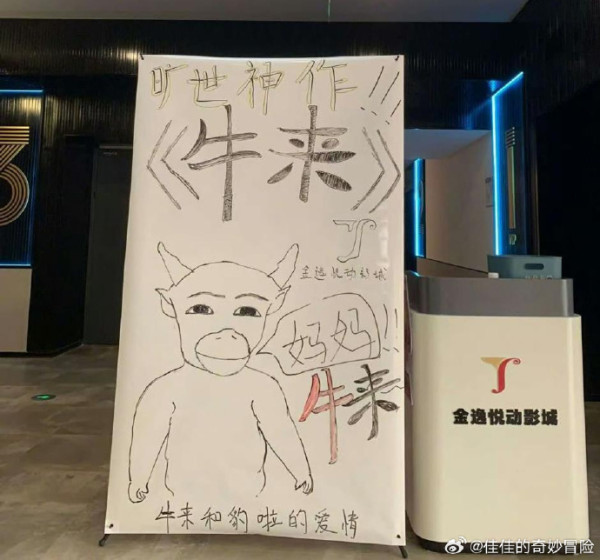 旷世神作!!!
《牛来》
金逸悦动影城
妈妈!!!
牛来
牛来和豹啦的爱情
金逸悦动影城
@佳佳的奇妙冒险